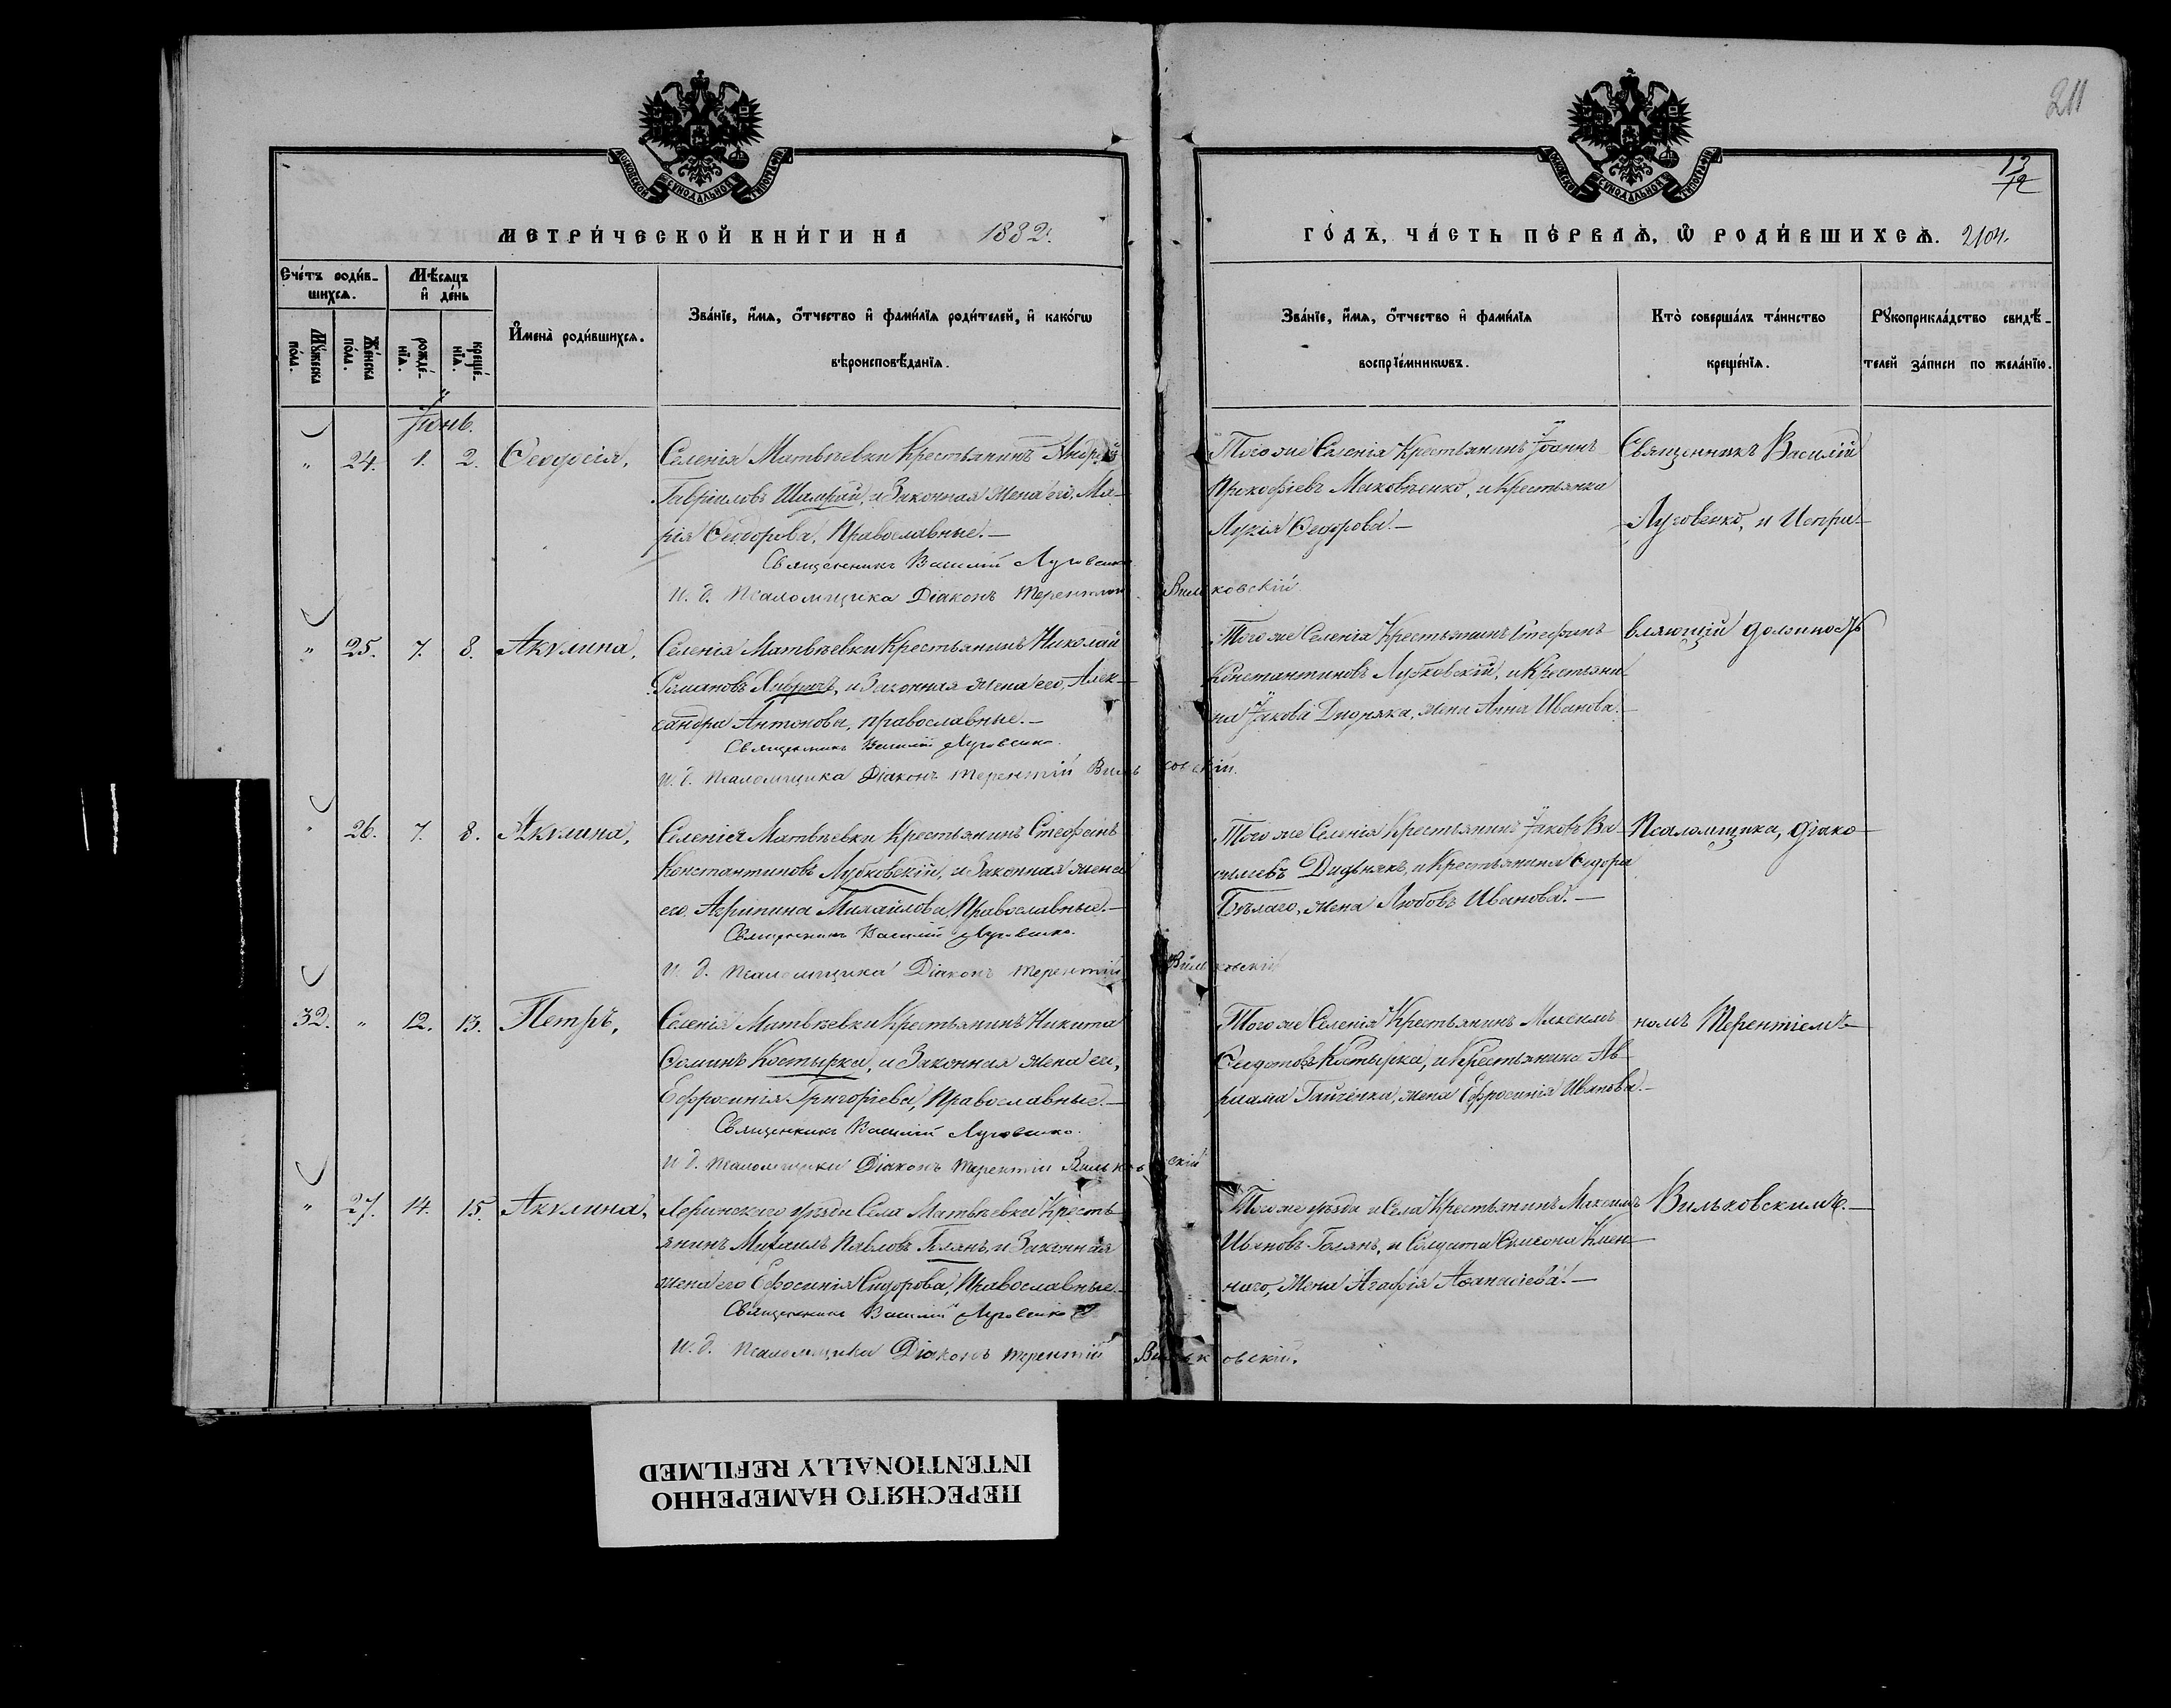 211
13
12
МОСКОВСКОЙ СѴНОДАЛЬНОЙ ТИПОГРАФІИ
МОСКОВСКОЙ СѴНОДАЛЬНОЙ ТИПОГРАФІИ
МЕТРИ́ЧЕСКОЙ КНИ́ГИ НА 1882.
ГО́ДЪ, ЧА́СТЬ ПЕ́РВАѦ, Ѽ РОДИ́ВШИХСѦ. 2104.
Сче́тъ роди́в-
шихсѧ.
Мѣ́сѧцъ
и҆ де́нь
Му́жеска
по́ла.
Же́нска
по́ла.
рожде́-
нїѧ.
креще́-
нїѧ.
И҆мена̀ роди́вшихсѧ.
Зва́нїе, и҆́мѧ, ѻ҆́тчество и҆ фами́лїѧ роди́телей, и҆ како́гѡ
вѣроисповѣ́данїѧ.
Зва́нїе, и҆́мѧ, ѻ҆́тчество и҆ фами́лїѧ
воспрїе́мникѡвъ.
Кто̀ соверша́лъ та́инство
креще́нїѧ.
Рꙋкоприкла́дство свидѣ́-
телей за́писи по жела́нїю.
Іюнь.
" 24. 1. 2. Ѳеодосія, Селенія Матвѣевки Крестьянинъ Андрей
Гавріиловъ Шамрай, и Законная жена его, Ма-
рія Ѳеодорова, Православные.—
Священникъ Василій Луговенко
И. д. Псаломщика Діаконъ Терентій Вильковскій
Того же Селенія Крестьянинъ Іоаннъ
Прокофіевъ Маковѣенко, и Крестьянка
Лукія Ѳедорова.—
Священникъ Василій
Луговенко, и Испра-
" 25. 7. 8. Акулина, Селенія Матвѣевки Крестьянинъ Николай
Романовъ, и Законная жена его, Алек-
сандра Антонова, православные.—
Священникъ Василій Луговенко.
И. д. Псаломщика Діаконъ Терентій Вильковскій.
Того же Селенія Крестьянинъ Стефанъ
Константиновъ Лубковскій, и Крестьяни-
на Іакова Дидняка, жена Анна Иванова.—
вляющій должность
" 26. 7. 8. Акулина, Селенія Матвѣевки Крестьянинъ Стефанъ
Константиновъ Лубковскій, и Законная жена
его, Агрипина Михайлова, Православные.—
Священникъ Василій Луговенко.
И. д. Псаломщика Діаконъ Терентій Вильковскій
Того же Селенія Крестьянинъ Іаковъ Ва-
сильевъ Дидьнякъ, и Крестьянина Сидора
Бѣлаго, жена Любовъ Иванова.—
Псаломщика, діако-
32. " 12. 13. Петръ, Селенія Матвѣевки Крестьянинъ Никита
Ѳоминъ Костырка, и Законная жена его,
Ефросинія Григоріева, Православные.—
Священникъ Василій Луговенко.
И. д. Псаломщика Діаконъ Терентій Вильковскій
Того же Селенія Крестьянинъ Максимъ
Костырка, и Крестьянина Ав-
раама Гайченка, жена Ефросинія Иванова.—
номъ Терентіемъ
" 27. 14. 15. Акулина, уѣзда Села Матвѣевки Кресть-
янинъ Михаилъ Павловъ, и Законная
жена его Ефросинія Сидорова, Православные.—
Священникъ Василій Луговенко
И. д. Псаломщика Діаконъ Терентій Вильковскій.
Того же уѣзда и Села Крестьянинъ Максимъ
Ивановъ Голянъ, и Солдата Симеона
жена Агафія Аѳанасіева.—
Вильковскимъ.—
ПЕРЕСНЯТО НАМЕРЕННО
INTENTIONALLY REFILMED